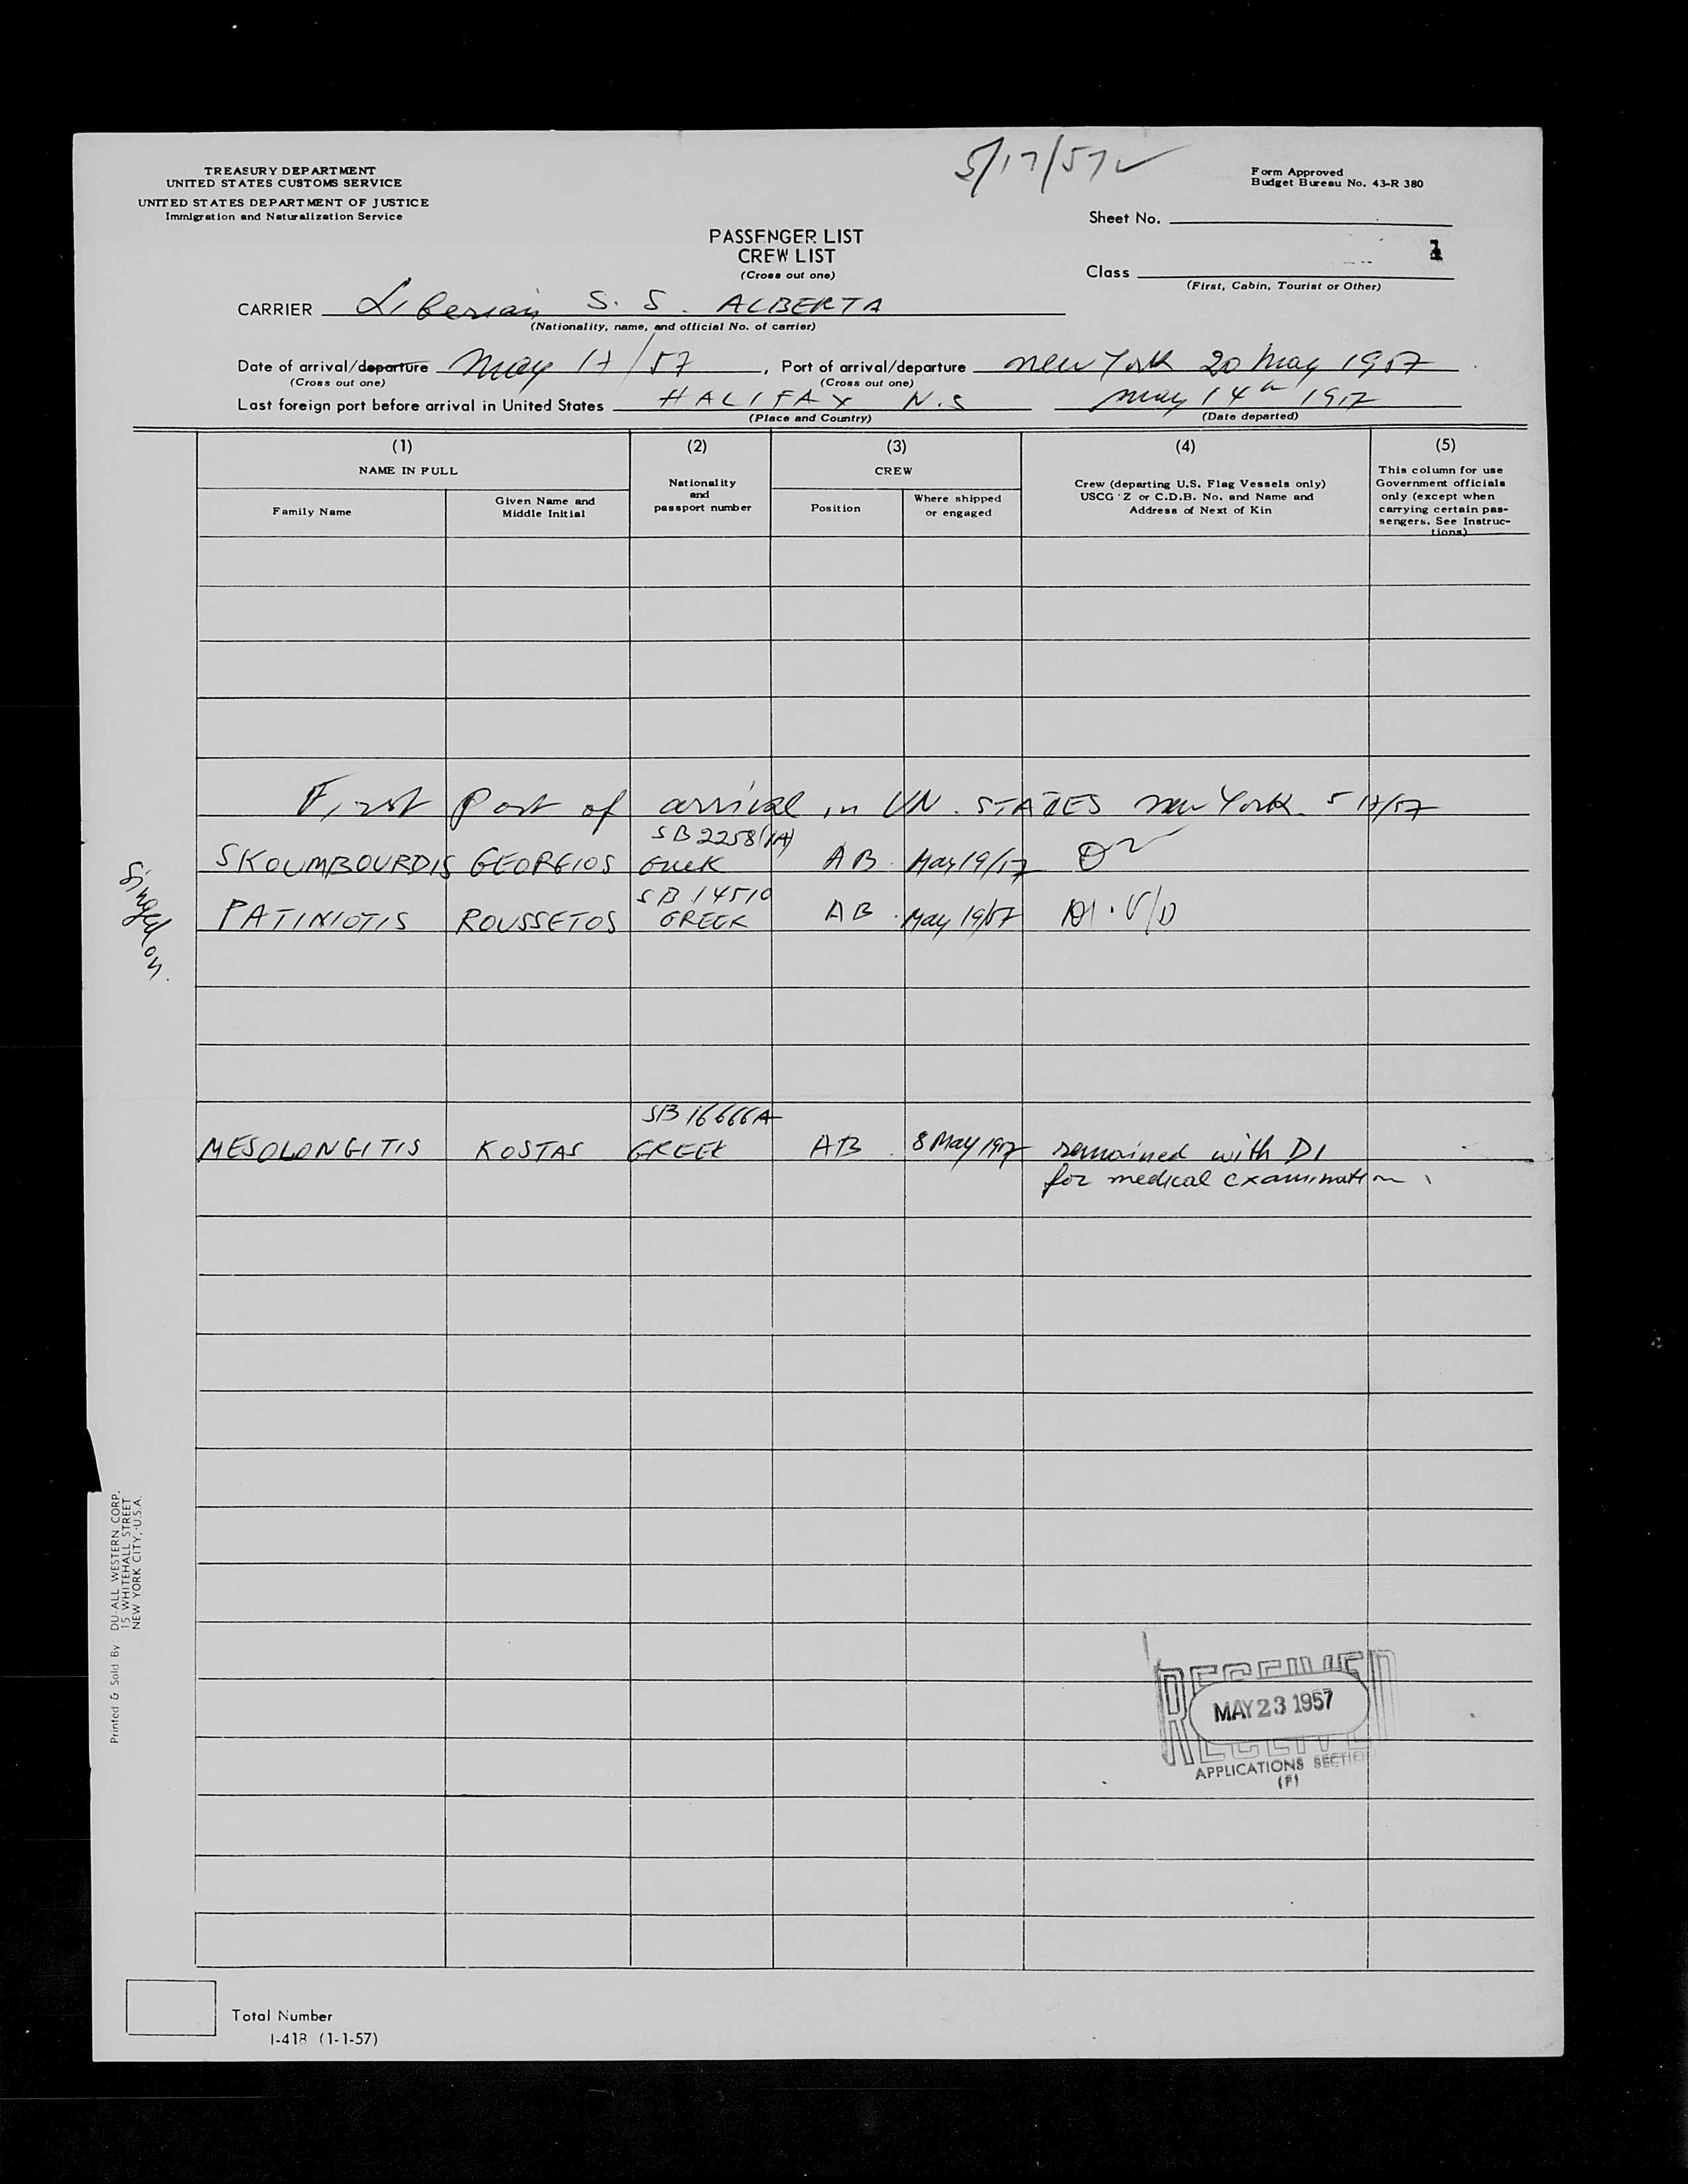 5/17/57
TREASURY DEPARTMENT
UNITED STATES CUSTOMS SERVICE
UNITED STATES DEPARTMENT OF JUSTICE
Immigration and Naturalization Service
Form Approved
Budget Bureau No. 43-R 380
Sheet No.
PASSENGER LIST
CREW LIST
(Cross out one)
1
Class
(First, Cabin, Tourist or Other)
CARRIER Liberian S. S. ALBERTA
(Nationality, name, and official No. of carrier)
Date of arrival/departure May 17/57, Port of arrival/departure New York 20 May 1957
(Cross out one) (Cross out one)
Last foreign port before arrival in United States HALIFAX N.S May 14th 1957
(Place and Country) (Date departed)
(1) (2) (3) (4) (5)
NAME IN FULL
Family Name
Given Name and
Middle Initial
Nationality
and
passport number
CREW
Position
Where shipped
or engaged
Crew (departing U.S. Flag Vessels only)
USCG Z or C.D.B. No. and Name and
Address of Next of Kin
This column for use
Government officials
only (except when
carrying certain pas-
sengers. See Instruc-
tions)
First Port of arrival in UN. STATES New York 5 17/57
SB 2258
SKOUMBOURDIS GEORGIOS Greek AB May 19/57
SB 14510
PATINIOTIS ROUSSETOS GREEK AB May 19/57
Singed on.
SB 16666A
MESOLONGITIS KOSTAS GREEK AB 8 May 1957 remained with DI
for medical examination
RECEIVED
MAY 23 1957
RECEIVED
APPLICATIONS SECTION
(F)
Printed & Sold By DU-ALL WESTERN CORP.
15 WHITEHALL STREET
NEW YORK CITY, U.S.A.
Total Number
I-418 (1-1-57)